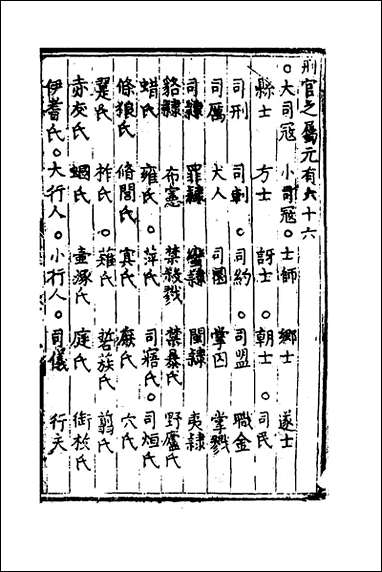 刑官之屬元有六十六
○大司冦 小司冦○士師 鄉士 遂士
縣士 方士 訝士○朝士○司民
司刑 司刺○司約○司盟 職金
司厲 犬人 司圜 掌囚 掌戮
司隷 罪隷 蠻隷 閩隷 夷隷
貉隷 布憲 禁殺戮 禁暴氏 野廬氏
蜡氏 雍氏○萍氏 司寤氏○司烜氏
條狼氏 脩閭氏 冥氏 庶氏 穴氏
翨氏 柞氏○薙氏 硩蔟氏 翦氏
赤犮氏 蟈氏 壺涿氏 庭氏 銜枚氏
伊耆氏○大行人○小行人○司儀 行夫